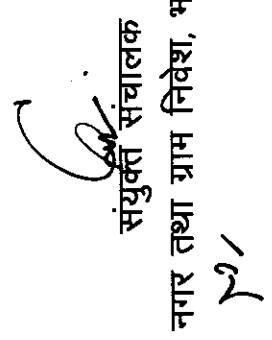 संयुक्त संचालक
नगर तथा ग्राम निवेश,